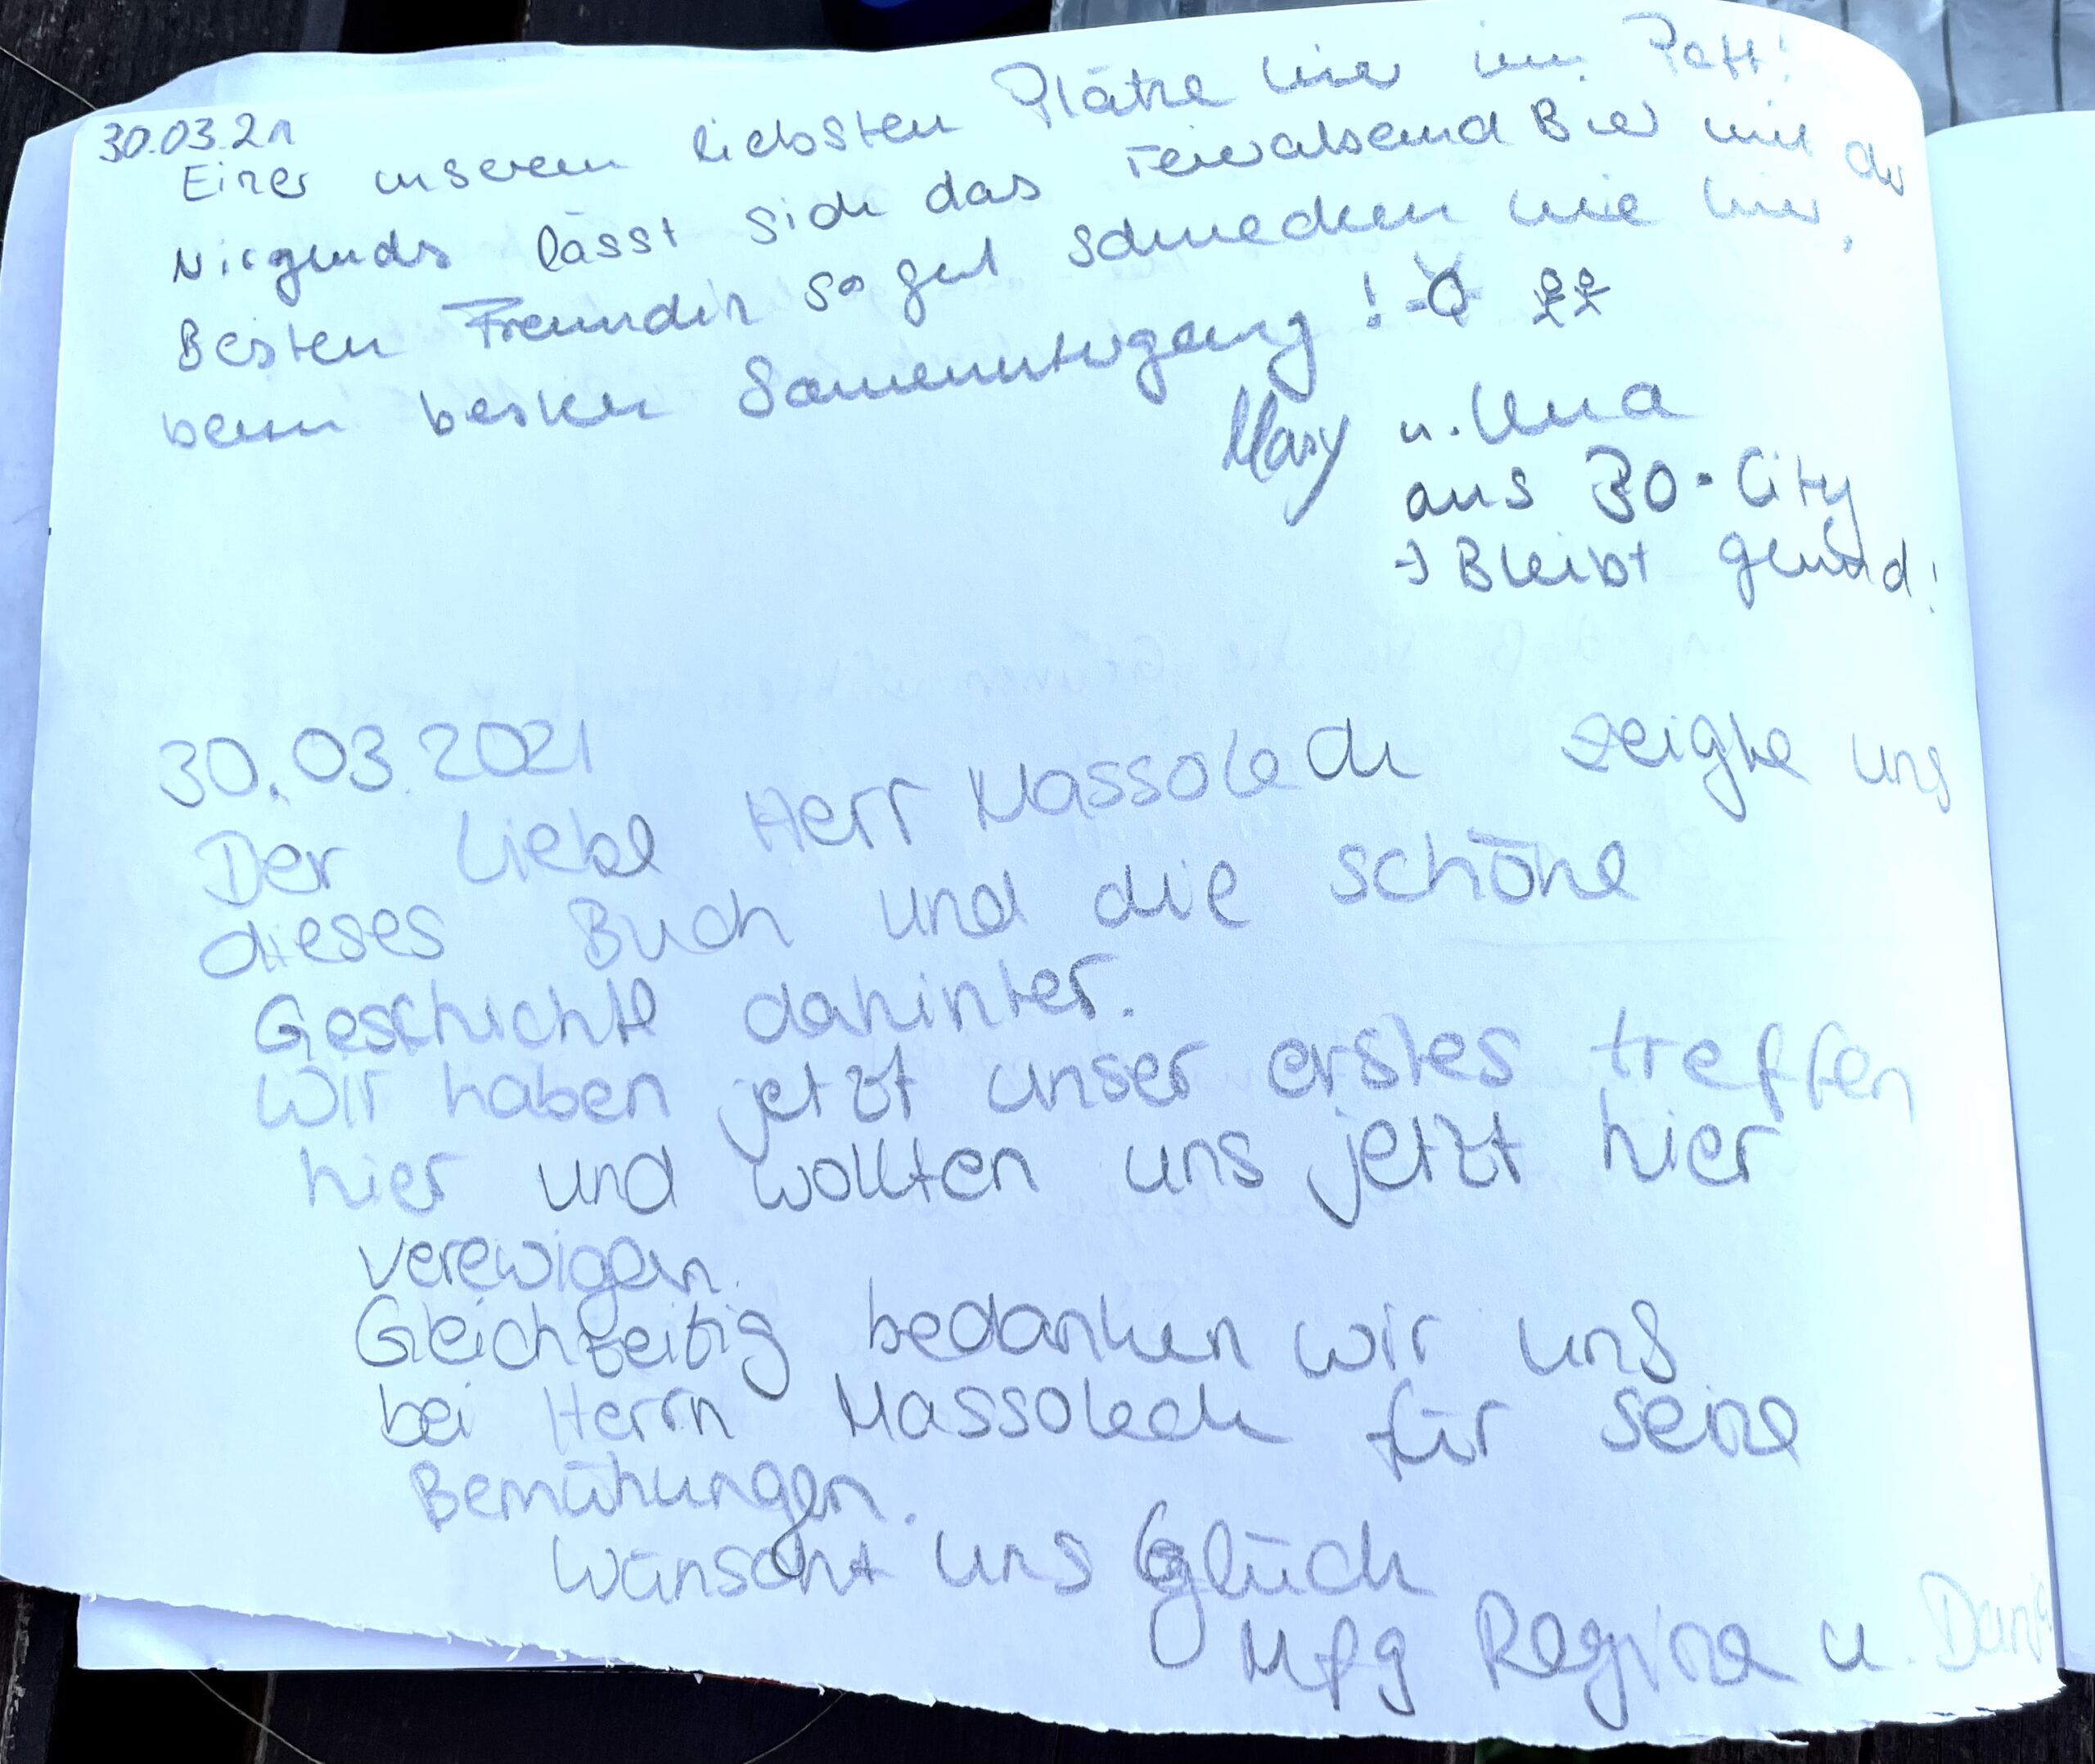 30.03.21
Einer unserem liebsten Plätze hier im Pott!
Nirgends lässt sich das Feierabend Bier mit der
Besten Freundin so gut schmecken wie hier,
beim besten Sonnenuntergang!
Mary u. Lena
aus BO-City
→ Bleibt gesund!
30.03.2021
Der liebe Herr Massoleck zeigte uns
dieses Buch und die schöne
Geschichte dahinter.
Wir haben jetzt unser erstes treffen
hier und wollten uns jetzt hier
verewigen.
Gleichzeitig bedanken wir uns
bei Herrn Massoleck für seine
Bemühungen.
Wünscht uns Glück
Mfg Regina u.